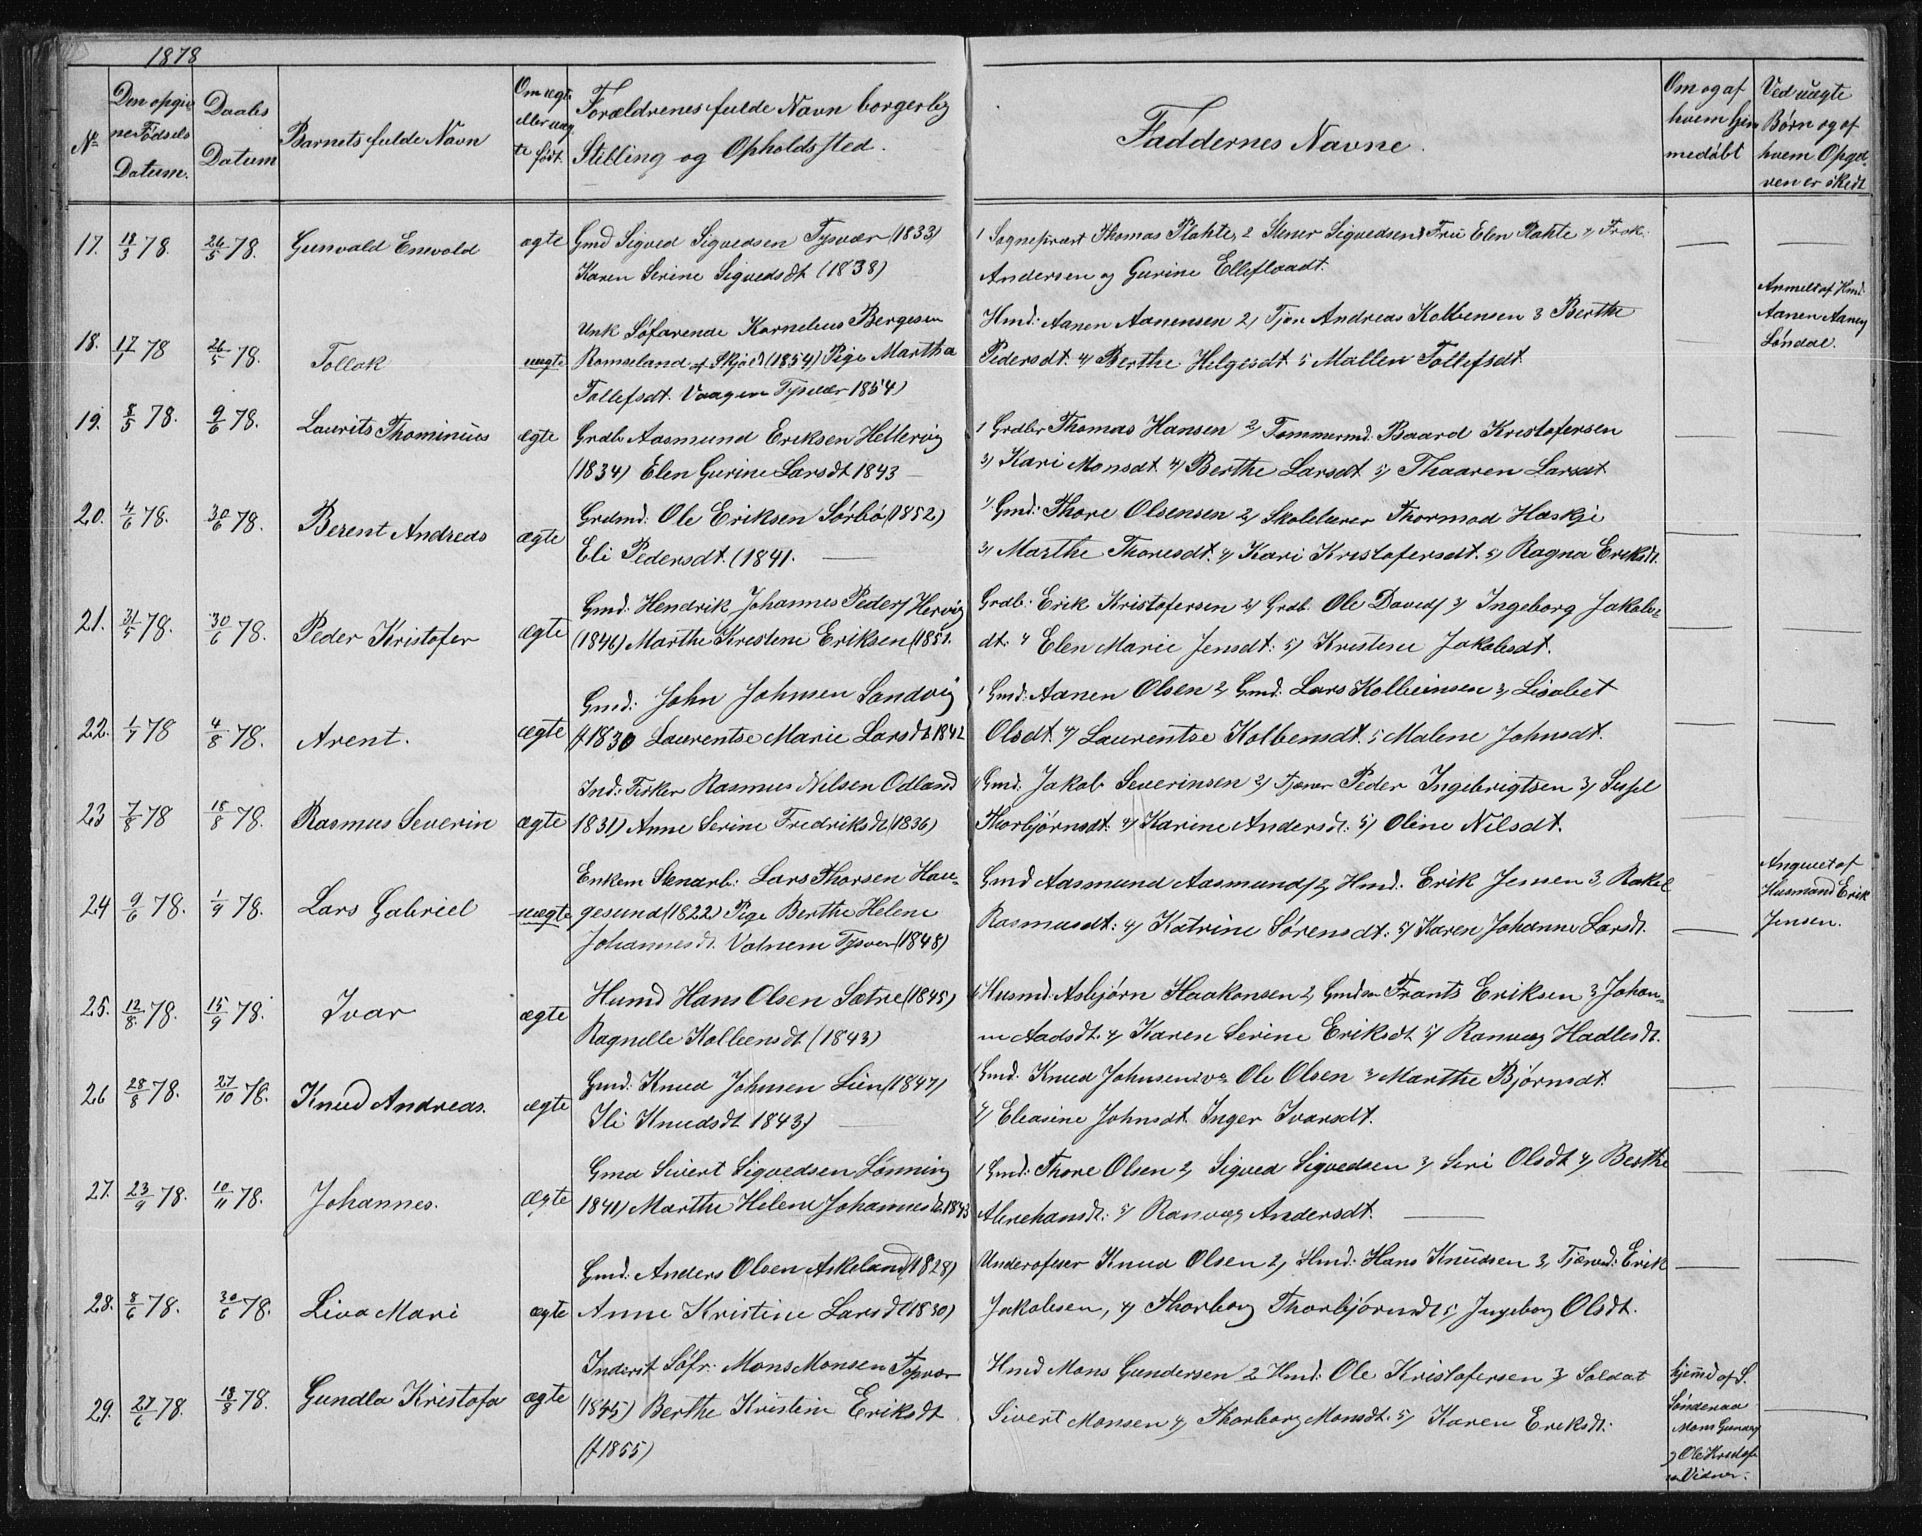 1878
No
Den opgivne Fødsels Datum.
Daabs Datum
Barnets fulde Navn
Om ægte eller uægte født.
Forældrenes fulde Navn borgerlig Stilling og Opholdssted.
Faddernes Navne.
Om og af hvem hjemmedøbt
Ved uægte Børn og af hvem Opgaven er skedt
17. 18/3 78. 26/5 78. Gunvald Enevold ægte Gmd Sigved Sigvedsen Tysvær (1833) 1 Sogneprært Thomas Plahte, 2 Stener Sigvedsen 3 Fru Elen Plahte 4 Frøk.
Karen Serine Sigvedsdt (1838) Andersen og Gurine Elleflaadt.
18. 17/1 78 26/5 78. Tollak uægte Unk Søfarende Kornelius Bergesen Hmd: Aanen Aanensen 2, Tjen Andreas Kolbensen 3 Berthe Anmeldt af Hmd.
Ramseland af Skjold (1854) Pige Martha Pedersdt. 4) Berthe Helgesdt 5 Mallen Tollefsdt. Aanen Aanens
Tollefsdt. Vaagen Tysvær 1854) Søndal.
19. 8/5 78. 9/6 78. Laurits Thominius ægte Grdb. Aasmund Eriksen Hettervig 1 Grdbr Thomas Hansen 2) Tømmermd. Baard Kristofersen
(1834) Elen Gurine Larsdt 1843 3) Kari Monsdt 4) Berthe Larsdt 5) Thaaren Larsdt
20. 4/6 78. 30/6 78. Berent Andreas ægte Grdmd: Ole Eriksen Sørbø (1852) 1) Gmd: Thore Olsensen 2) Skolelærer Thormod Haskje
Eli Pedersdt. (1841. 3) Marthe Thoresdt. 4) Kari Kristofersdt. 5) Ragna Eriksdt.
21. 31/5 78. 30/6 78. Peder Kristofer ægte Gmd. Hendrik Johannes Peders Hervig Grdb: Erik Kristofersen 2) Grdb. Ole Davids 3) Ingeborg Jakobs-
(1846) Marthe Kristene Eriksen (1851. dt. 4 Elen Marie Jensdt: 5) Kristene Jakobsdt.
22. 1/7 78 4/8 78. Arent. ægte Gmd: John Johnsen Sandvig 1 Gmd: Aanen Olsen 2, Gmd: Lars Kolbeinsen 3, Lisabet
f 1830 Laurentse Marie Larsdt 1842 Olsdt. 4) Laurentse Kolbensdt. 5 Malene Johnsdt.
23 7/8 78 18/8 78. Rasmus Severin ægte Ind: Fisker Rasmus Nilsen Odland 1/ Gmd. Jakob Severinsen 2) Tjener Peder Ingebrigtsen 3)
1831) Anne Serine Fredriksdt (1836) Thorbjørnsdt: 4) Karine Andersdt: 5) Oline Nilsdt.
24 9/6 78. 1/9 78. Lars Gabriel uægte Enkem Stenarb: Lars Thorsen Hau- Gmd Aasmund Aasmunds 2, Hmd. Erik Jensen 3, Rakel Angivet af
gesund (1822) Pige Berthe Helene Rasmusdt: 4) Katrine Sørensdt: 5) Karen Johanne Larsdt. Husmand Erik
Johannesdt. Valnem Tysvær (1848) Jensen.
25. 12/8 78. 15/9 78. Ivar ægte Husmd Hans Olsen Sætre (1845) 1/ Husmd. Asbjørn Haakonsen 2, Gmdsøn Frants Eriksen 3 Johan-
Ragnille Kolbensdt (1843) ne Aadsdt. 4) Karen Serine Eriksdt 5) Ranveg Hadlesdt.
26 28/8 78. 27/10 78. Knud Andreas. ægte Gmd: Knud Johnsen Lien (1847) 1 Gmd. Knud Johnsen 2 Ole Olsen 3) Marthe Bjørnsdt.
Ili Knudsdt 1843) 4) Eleasine Johnsdt. Inger Ivarsdt.
27. 23/9 78. 10/11 78. Johannes. ægte Gmd Sivert Sigvedsen Lønning 1 Gmd: Thore Olsen 2, Sigved Sigvedsen 3, Seri Olsdt 4) Berthe
1841) Marthe Helene Johannesdt. 1843 5) Ranveg Andersdt.
28. 8/6 78. 30/6 78. Liva Mari ægte Gmd: Anders Olsen Askeland (1828) Underofeser Knud Olsen 2, Hmd: Hans Knudsen 3, Tjæned: Erik
Anne Kristine Larsdt (1830) Jakobsen, 4) Thorborg Thorbjørnsdt 5, Ingeborg Olsdt.
29. 27/6 78. 18/8 78. Gundla Kristofa ægte Inderst Søfr: Mons Monsen Tysvær Hmd Mons Gundersen 2 Hmd: Ole Kristofersen 3, Soldat hjemmd af S.
1845) Berthe Kristine Eriksdt. Sivert Monsen 4, Thorborg Monsdt. 5) Karen Eriksdt. Sønderaa
(f 1855) Mons Gunders
Ole Kristofer
Vidner.